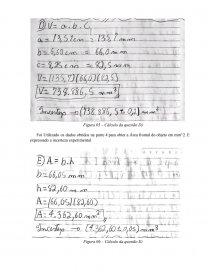 D) V = a.b.c
a = 13,57cm = 135,7 mm
b = 6,60cm = 66,0mm
c = 8,25cm = 82,5mm
V = (135,7)(66,0)(82,5)
V = 738.886,5 mm³
Incerteza → (738.886,5 ± 0,1) mm³
Figura 05 - Cálculo da questão D)
Foi Utilizado os dados obtidos na parte 4 para obter a Área frontal do objeto em mm^2. E
expressando a incerteza experimental
E) A = b.h
b = 66,05mm
h = 82,60 mm
A = (66,05)(82,60)
A = 4.362,60 mm²
Incerteza → (4.362,60 ± 0,05) mm²
Figura 06 - Cálculo da questão E)